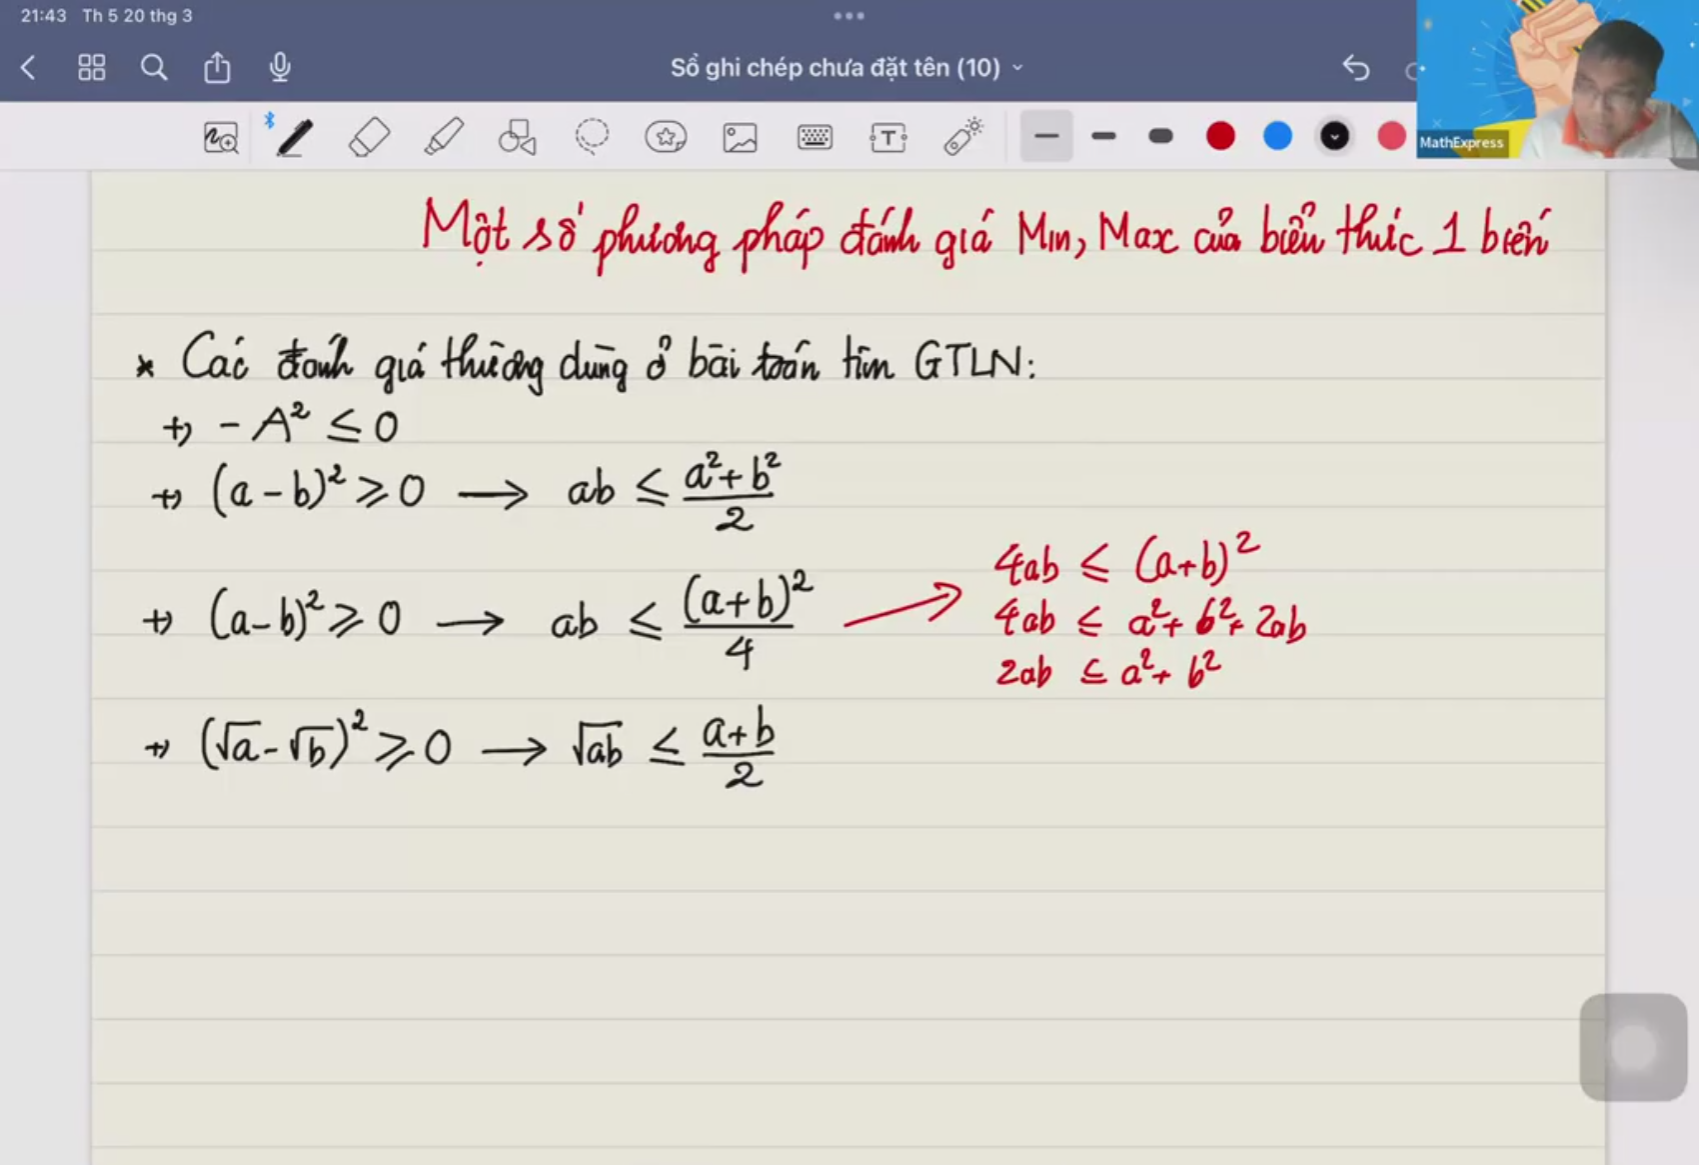 21:43 Th 5 20 thg 3
Sổ ghi chép chưa đặt tên (10)
MathExpress
Một số phương pháp đánh giá Min, Max của biểu thức 1 biến
* Các đánh giá thường dùng ở bài toán tìm GTLN:
+) -A² ≤ 0
+) (a-b)² ≥ 0 → ab ≤ (a²+b²)/2
+) (a-b)² ≥ 0 → ab ≤ (a+b)²/4
4ab ≤ (a+b)²
4ab ≤ a²+b²+2ab
2ab ≤ a²+b²
+) (√a-√b)² ≥ 0 → √ab ≤ (a+b)/2